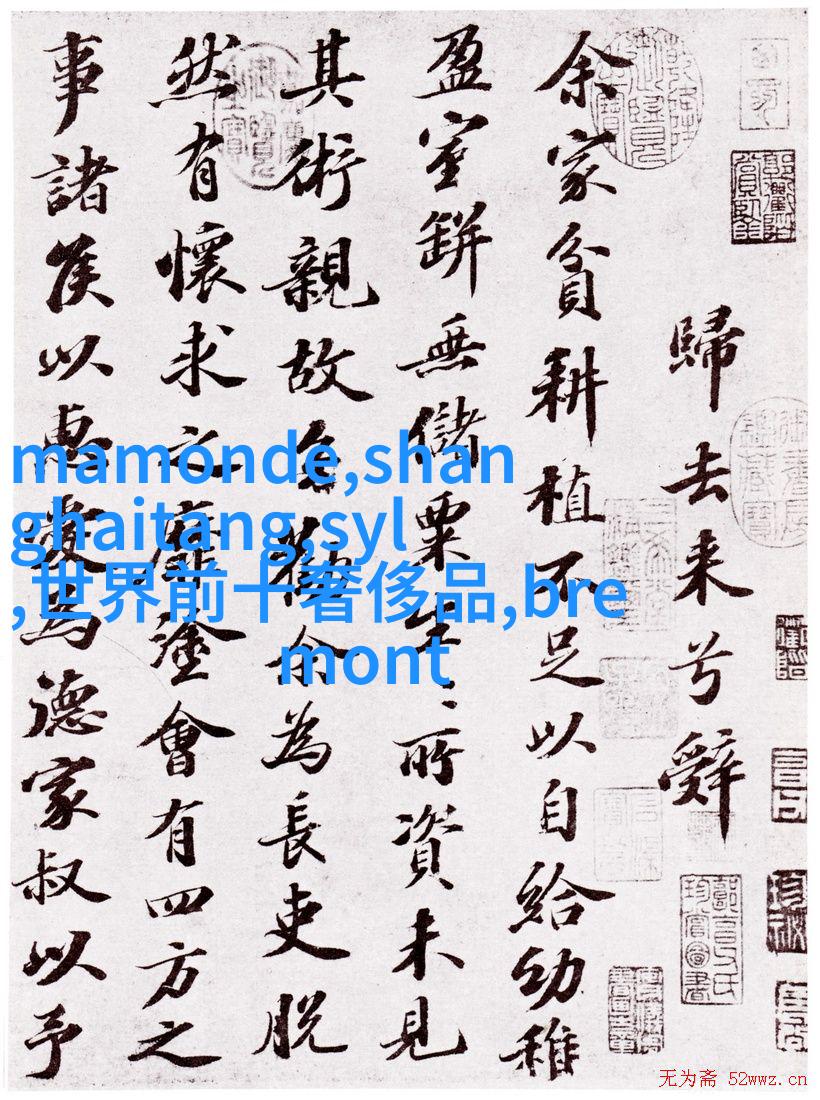 歸去来兮辭
余家貧耕植不足以自給幼稚
盈室缾無儲粟生〻所資未見
其術親故多勸余為長吏脱
然有懷求之靡塗會有四方之
事諸侯以惠愛為德家叔以予
mamonde,shan
ghaitang,syl
,世界前十奢侈品,bre
mont
无为斋 52wwz.cn